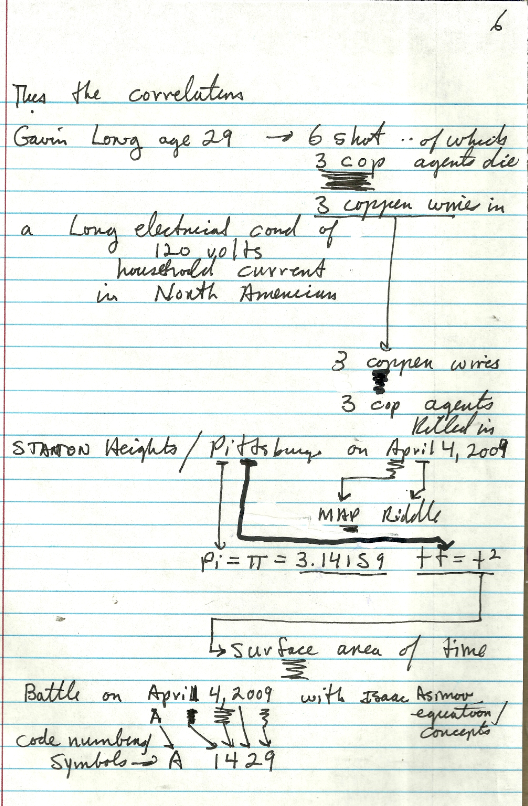 6
Thus the correlations
Gavin Long age 29 → 6 shot .. of which
3 cop agents die
3 copper wires in
a Long electrical cord of
120 volts
household current
in North American
3 copper wires
3 cop agents
killed in
STANTON Heights / Pittsburgh on April 4, 2009
MAP Riddle
Pi = π = 3.14159 tt = t²
→ surface area of time
Battle on April 4, 2009 with Isaac Asimov
A equation /
concepts
code numbing
Symbols → A 1429